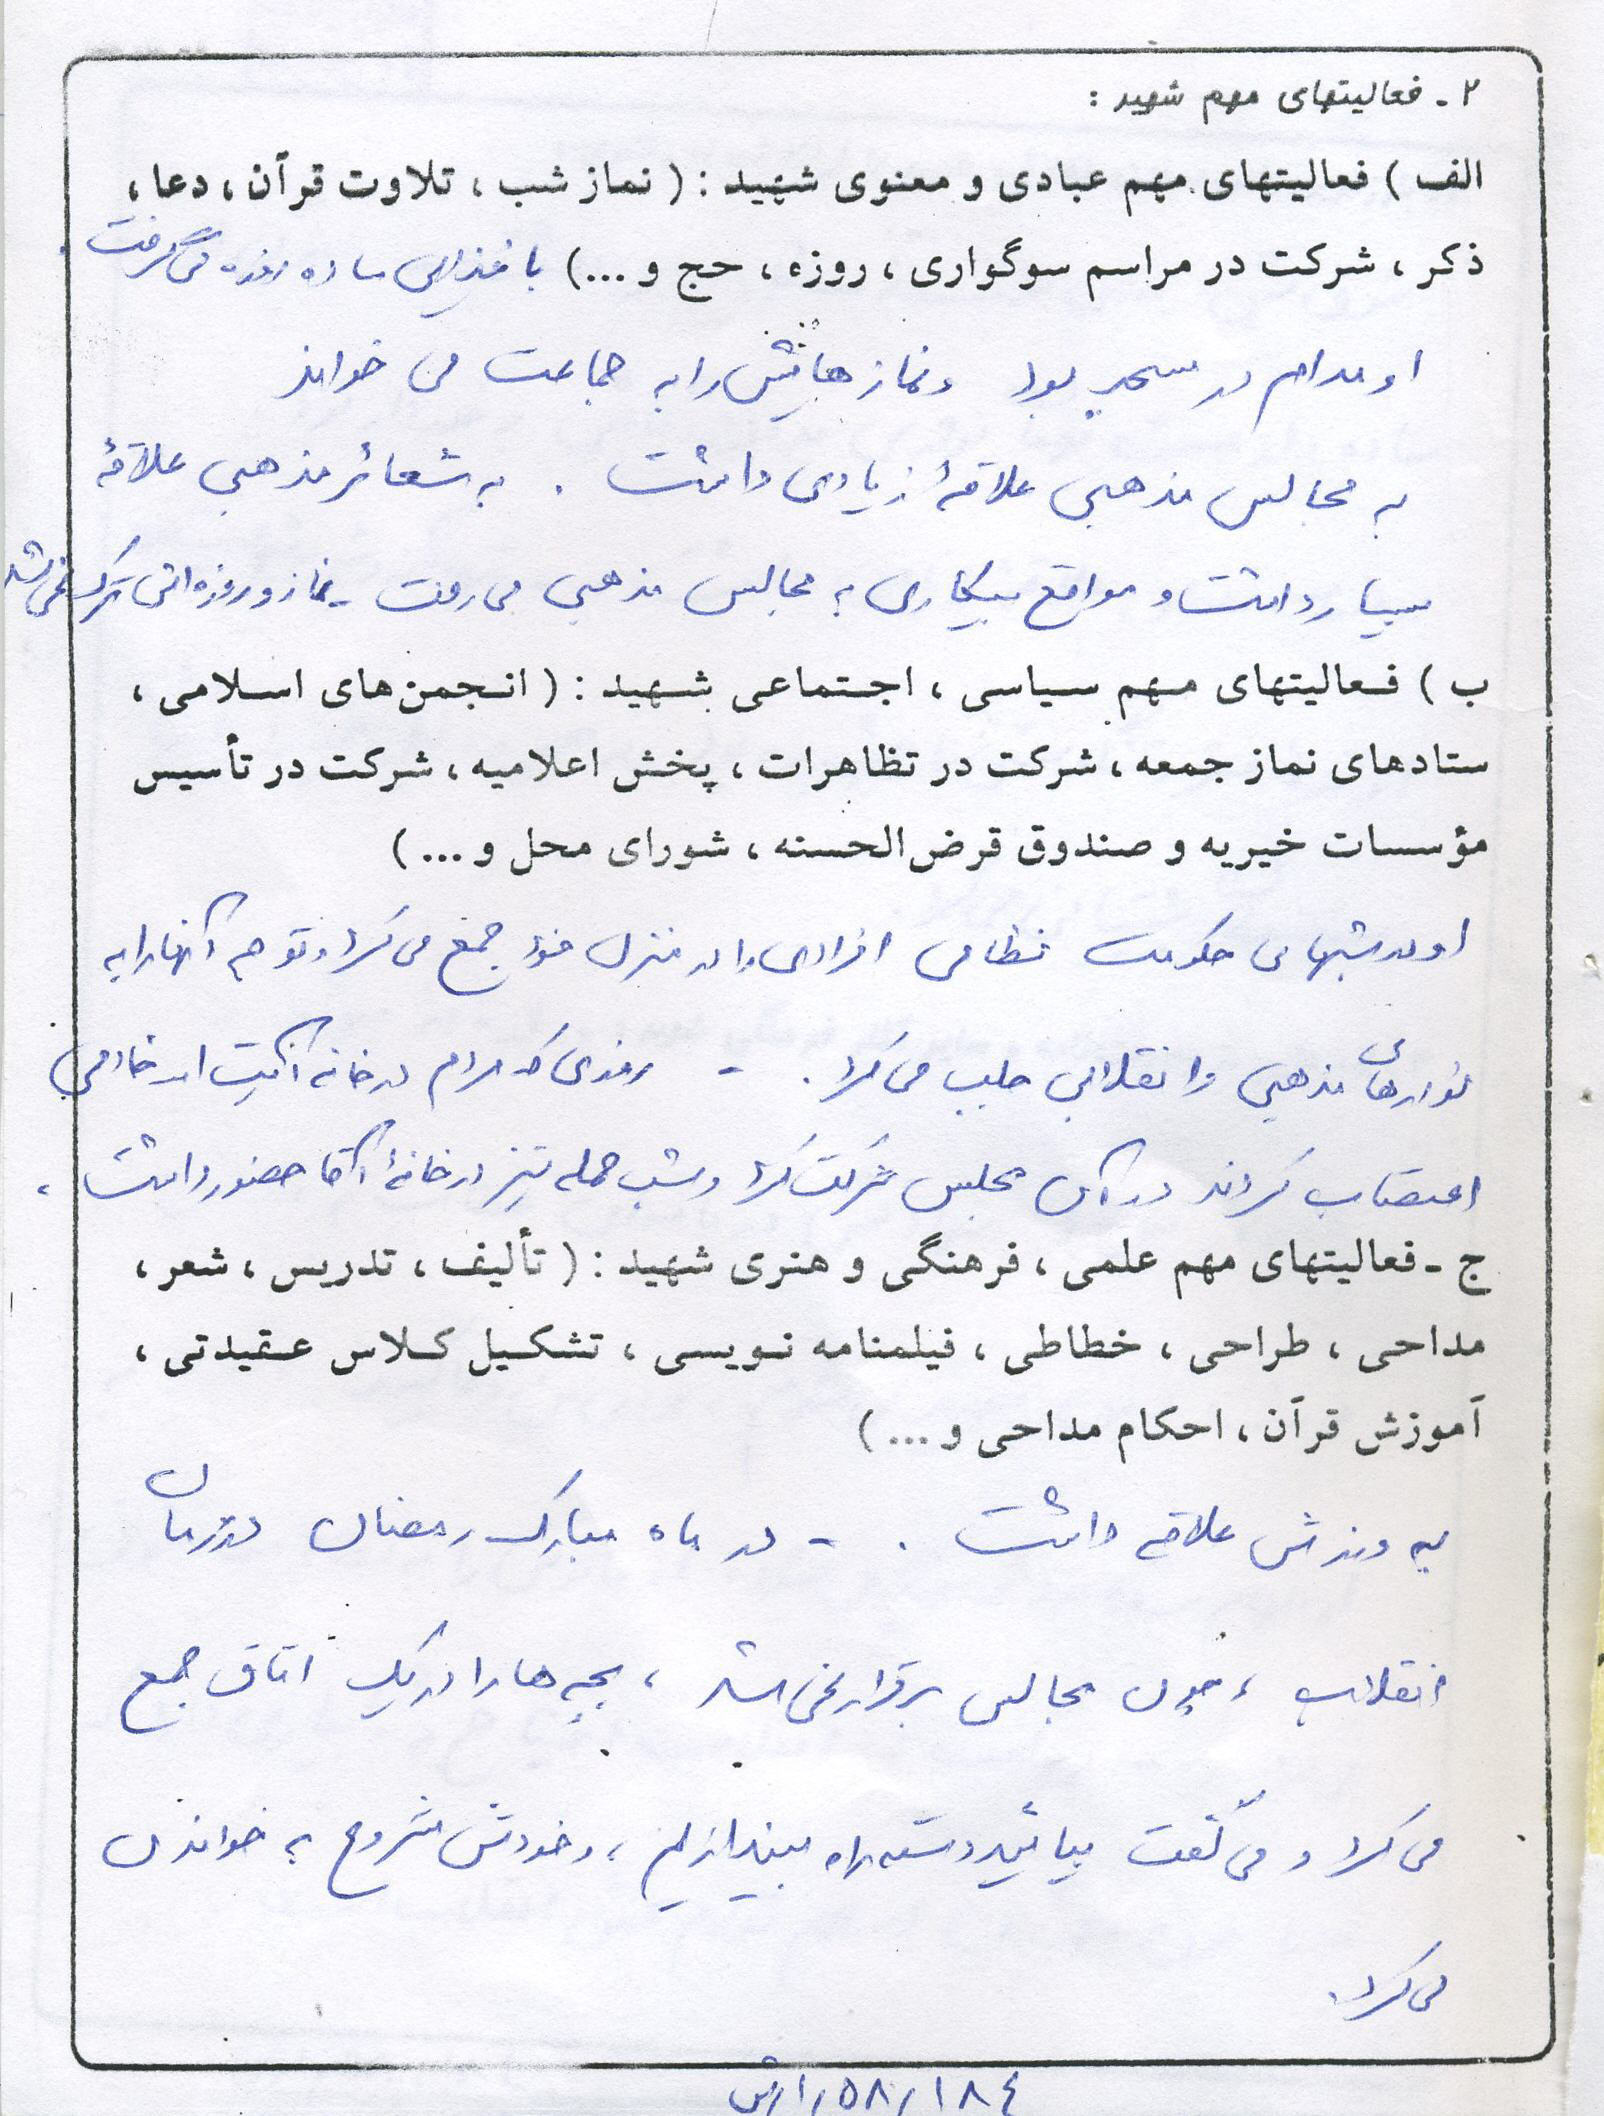 ۲ - فعالیتهای مهم شهید :
الف ) فعالیتهای مهم عبادی و معنوی شهید : ( نماز شب ، تلاوت قرآن ، دعا ،
ذکر ، شرکت در مراسم سوگواری ، روزه ، حج و ...) با غذایی ساده روزه می گرفت .
او مدام در مسجد بود و نمازهایش را به جماعت می خواند
به مجالس مذهبی علاقهٔ زیادی داشت . به شعائر مذهبی علاقهٔ
بسیار داشت و مواقع بیکاری به مجالس مذهبی می رفت - نماز و روزه اش ترک نمی شد
ب ) فعالیتهای مهم سیاسی ، اجتماعی شهید : ( انجمن‌های اسلامی ،
ستادهای نماز جمعه ، شرکت در تظاهرات ، پخش اعلامیه ، شرکت در تأسیس
مؤسسات خیریه و صندوق قرض‌الحسنه ، شورای محل و ... )
او در شبهای حکومت نظامی افرادی را در منزل خود جمع می کرد و توجه آنها را به
نوارهای مذهبی و انقلابی جلب می کرد . - روزی که مردم در خانه آیت ا... خادمی
اعتصاب کردند در آن مجلس شرکت کرد و شب حمله نیز در خانهٔ آقا حضور داشت .
ج - فعالیتهای مهم علمی ، فرهنگی و هنری شهید : ( تألیف ، تدریس ، شعر ،
مداحی ، طراحی ، خطاطی ، فیلمنامه نویسی ، تشکیل کلاس عقیدتی ،
آموزش قرآن ، احکام مداحی و ... )
به ورزش علاقه داشت . - در ماه مبارک رمضان در زمان
انقلاب ، چون مجالس برقرار نمی شد ، بچه ها را در یک اتاق جمع
می کرد و می گفت بیائید دسته راه بیندازیم ، و خودش شروع به خواندن
می کرد .